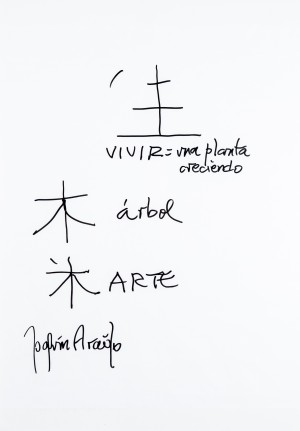 生
VIVIR = una planta
creciendo
木 árbol
米 ARTE
Joaquín Araújo